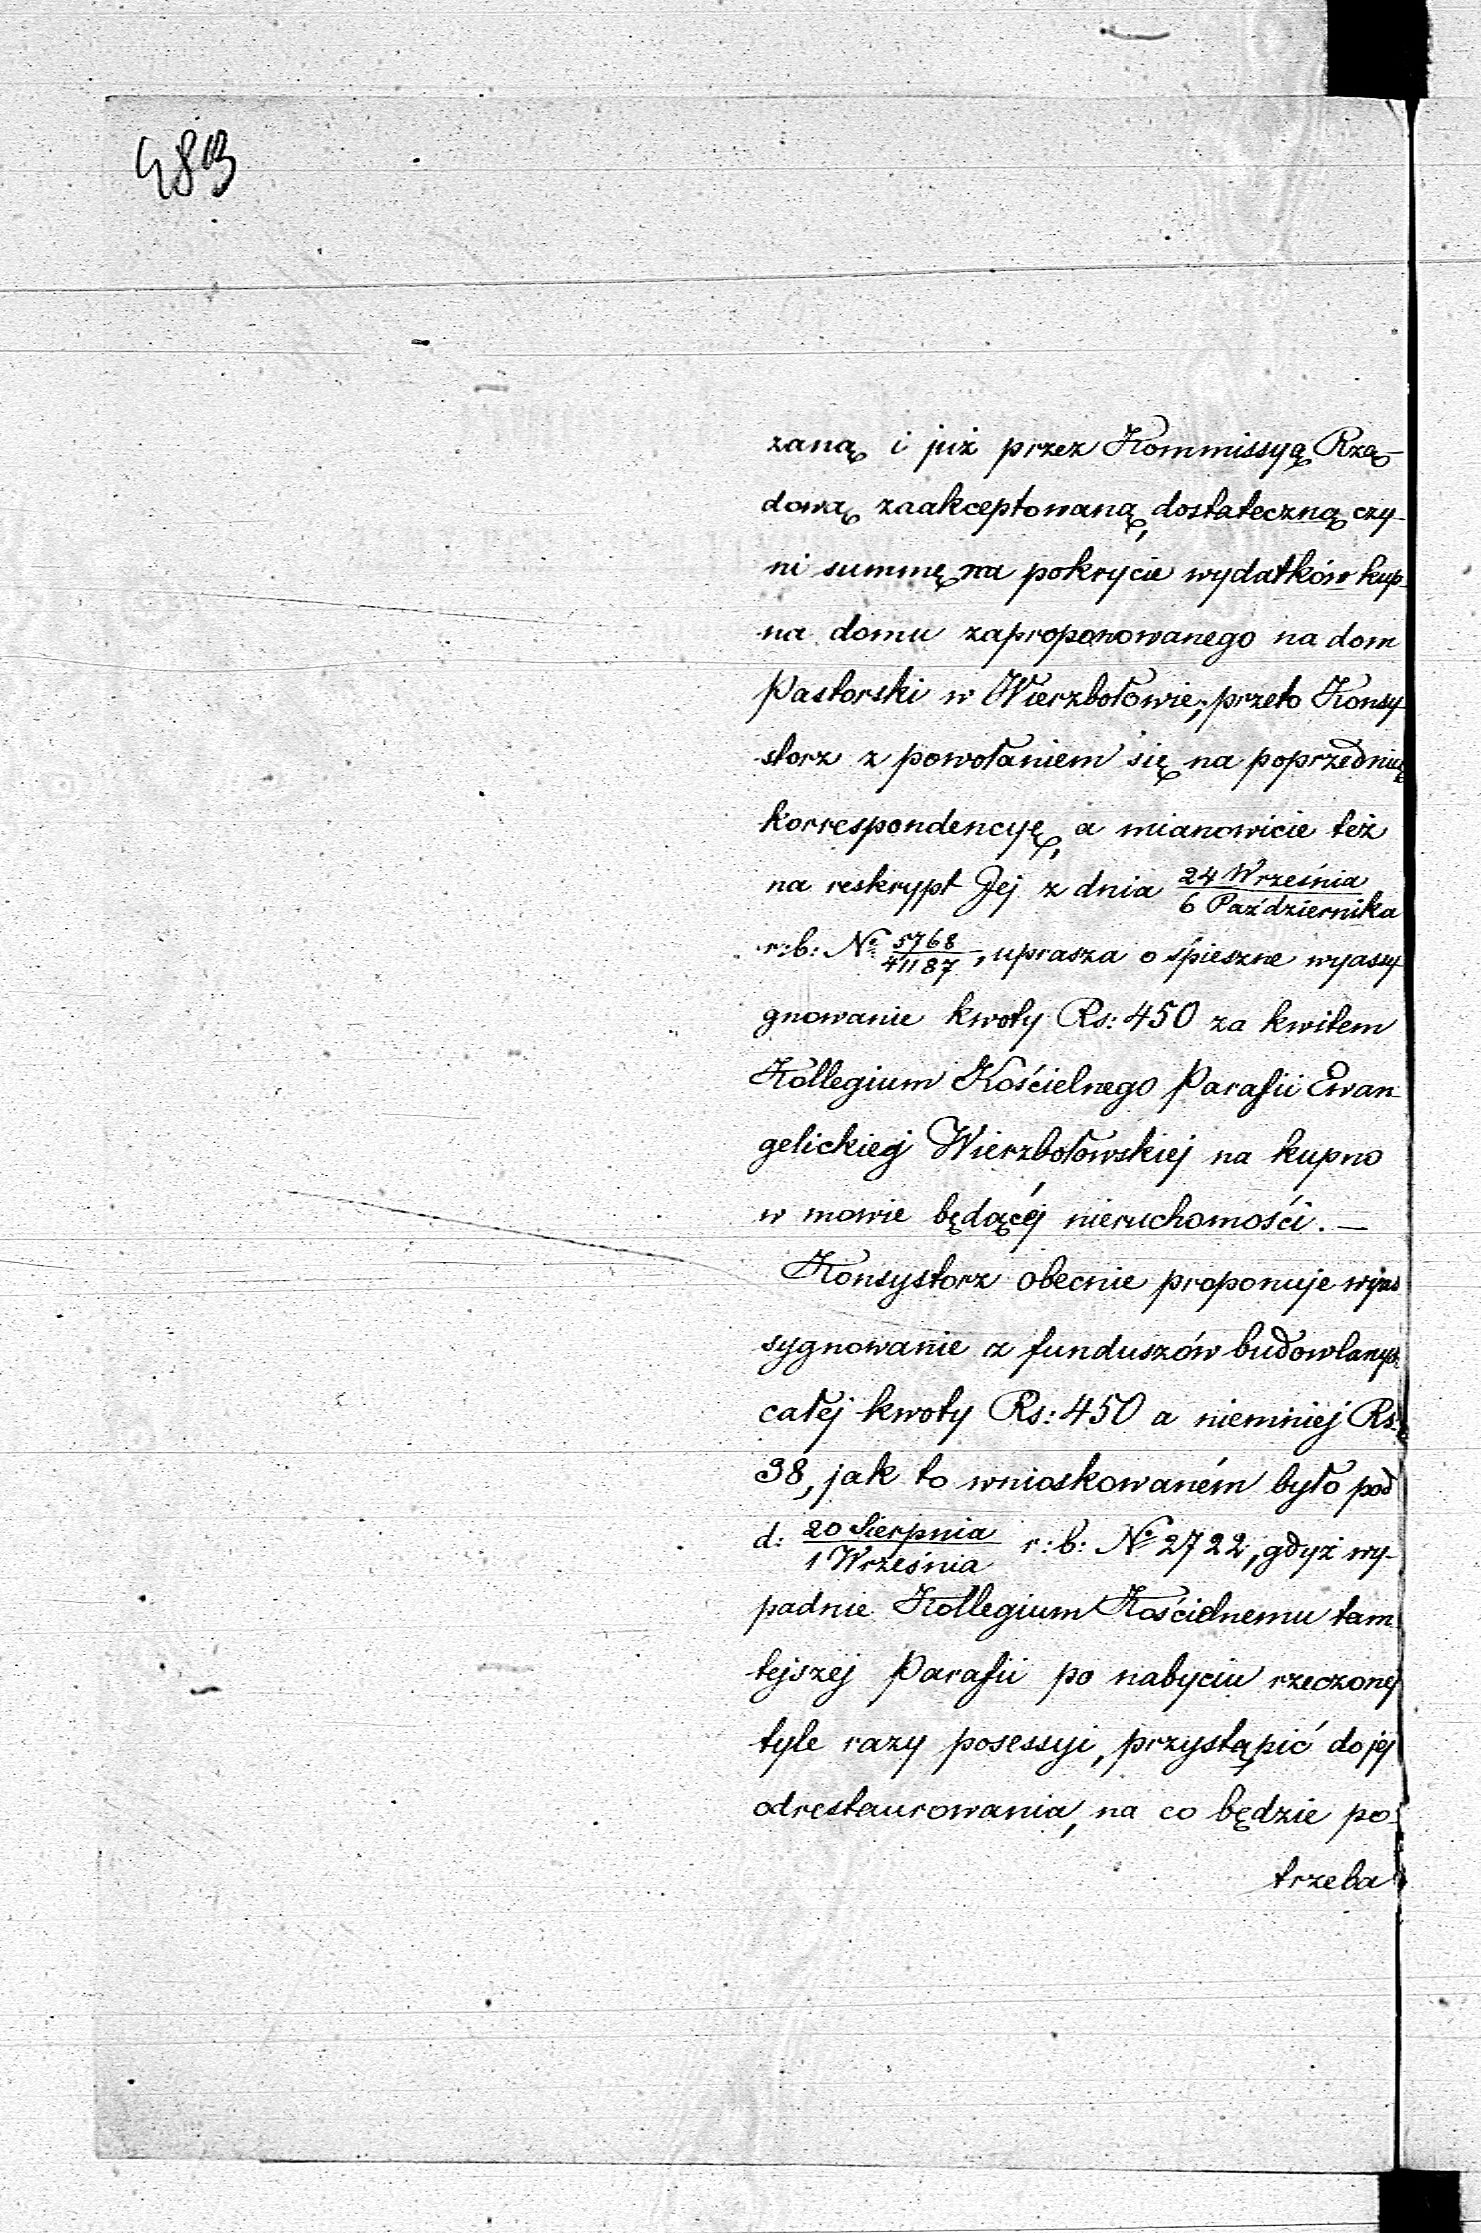 483
zaną i już przez Kommissyą Rzą-
dową zaakceptowaną, dostateczną czy-
ni summę na pokrycie wydatków kup-
na domu zaproponowanego na dom
Pastorski w Wierzbołowie; przeto Konsy-
storz z powołaniem się na poprzednią
korrespondencyę, a mianowicie też
na reskrypt Jej z dnia 24 Września / 6 Października
r: b: № 5768/41187, uprasza o śpieszne wyassy-
gnowanie kwoty Rs: 450 za kwitem
Kollegium Kościelnego Parafii Ewan-
gelickiej Wierzbołowskiej na kupno
w mowie będącéj nieruchomości. —
Konsystorz obecnie proponuje wyas
sygnowanie z funduszów budowlanych
całej kwoty Rs: 450 a niemniej Rs.
38, jak to wnioskowaném było pod
d: 20 Sierpnia / 1 Września r: b: № 2722, gdyż wy-
padnie Kollegium Kościelnemu tam
tejszej Parafii po nabyciu rzeczonej
tyle razy posessyi, przystąpić do jej
odrestaurowania, na co będzie po-
trzeba